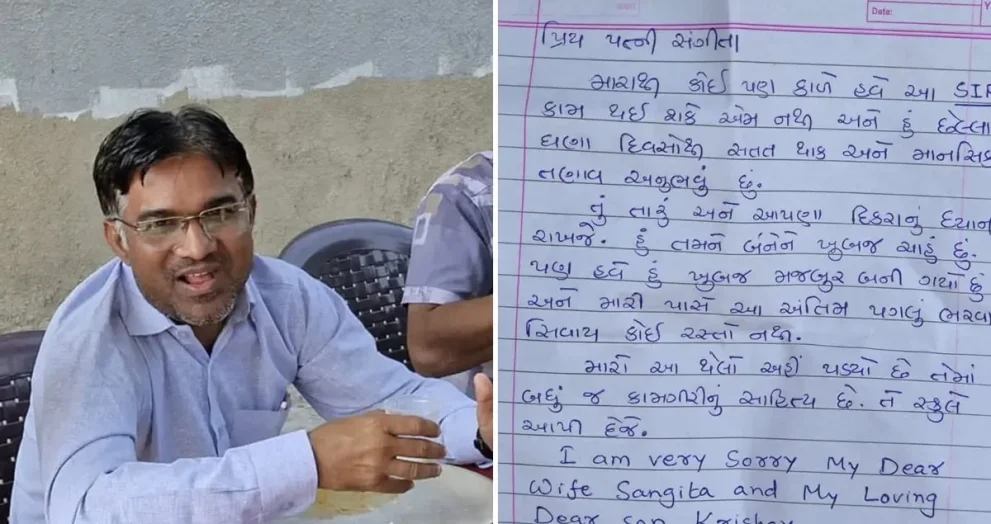 Date:
પ્રિય પત્ની સંગીતા
મારાથી કોઈ પણ કાળે હવે આ SIR
કામ થઈ શકે એમ નથી અને હું છેલ્લા
ઘણા દિવસોથી સતત થાક અને માનસિક
તણાવ અનુભવું છું.
તું તારું અને આપણા દિકરાનું ધ્યાન
રાખજે. હું તમને બંનેને ખુબજ ચાહું છું.
પણ હવે હું ખુબજ મજબુર બની ગયો છું
અને મારી પાસે આ અંતિમ પગલું ભરવા
સિવાય કોઈ રસ્તો નથી.
મારો આ થેલો અહીં પડ્યો છે તેમાં
બધું જ કામગીરીનું સાહિત્ય છે. તે સ્કુલે
આપી દેજે.
I am very Sorry My Dear
Wife Sangita and My Loving
Dear son Krishay